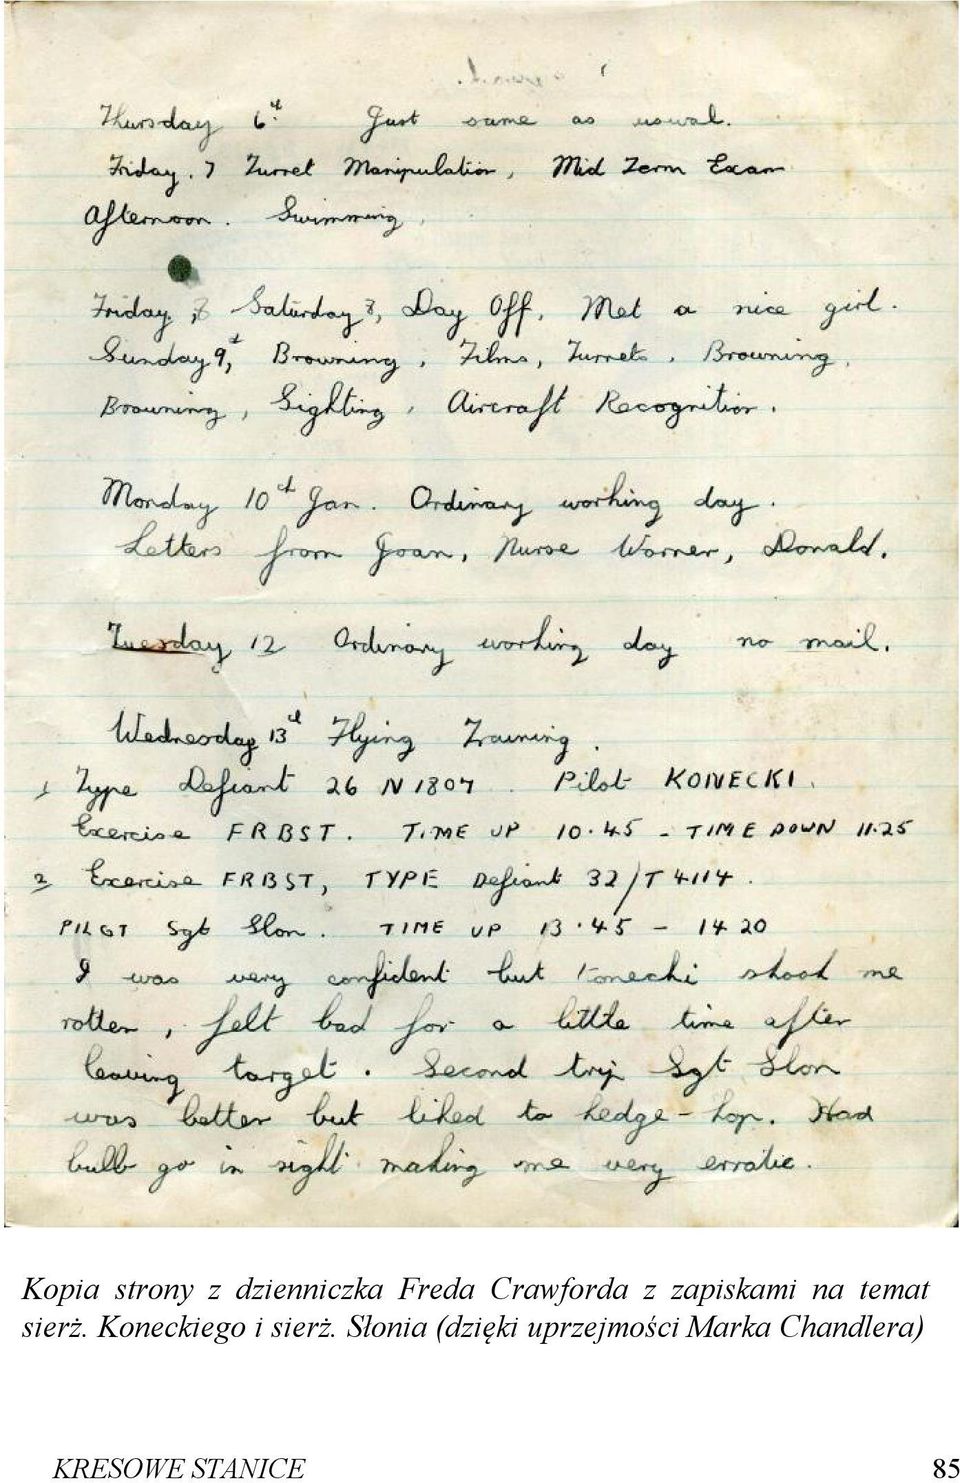 Thursday 6th. Just same as usual.
Friday. 7 Turret Manipulation, Mid Term Exam
Afternoon. Swimming.
Friday, 7 Saturday 8, Day Off, Met a nice girl.
Sunday 9th, Browning, Films, Turrets, Browning,
Browning, Sighting, Aircraft Recognition.
Monday 10th Jan. Ordinary working day.
Letters from Joan, Nurse Warner, Donald.
Tuesday 12 Ordinary working day no mail.
Wednesday 13th Flying Training.
1 Type Defiant 26 N1807. Pilot KONECKI.
Exercise FRBST. TIME UP 10.45 - TIME DOWN 11.25
2 Exercise FRBST, TYPE Defiant 32/T4114.
PILOT Sgt Slon. TIME UP 13.45 - 14 20
I was very confident but Konecki shook me
rotten, felt bad for a little time after
leaving target. Second trip Sgt Slon
was better but liked to hedge-hop. Had
bulb go in sight making me very erratic.
Kopia strony z dzienniczka Freda Crawforda z zapiskami na temat
sierż. Koneckiego i sierż. Słonia (dzięki uprzejmości Marka Chandlera)
KRESOWE STANICE 85